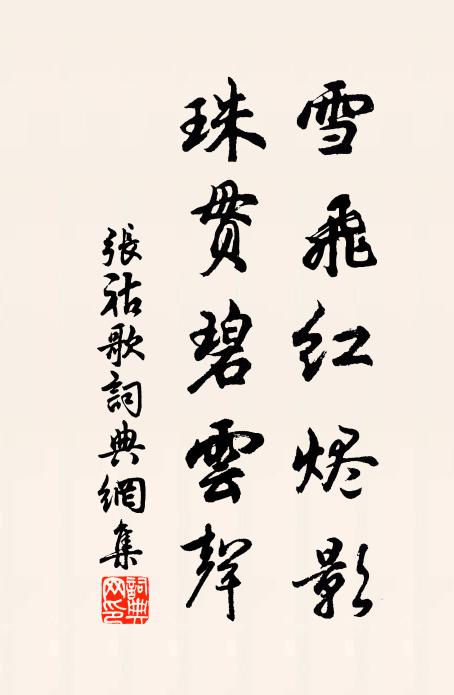 雪飛紅烬影
珠貫碧雲聲
張祜歌詞典網集
詞典网印